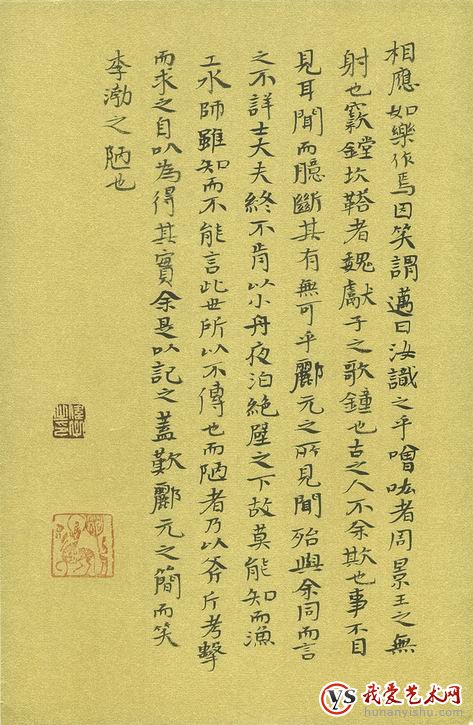 相應如樂作焉因笑謂邁曰汝識之乎噌吰者周景王之無
射也窾鏜坎鞳者魏獻子之歌鐘也古之人不余欺也事不目
見耳聞而臆斷其有無可乎酈元之所見聞殆與余同而言
之不詳士大夫終不肯以小舟夜泊絕壁之下故莫能知而漁
工水師雖知而不能言此世所以不傳也而陋者乃以斧斤考擊
而求之自以為得其實余是以記之蓋歎酈元之簡而笑
李渤之陋也
YS 我爱艺术网
hunanyishu.com